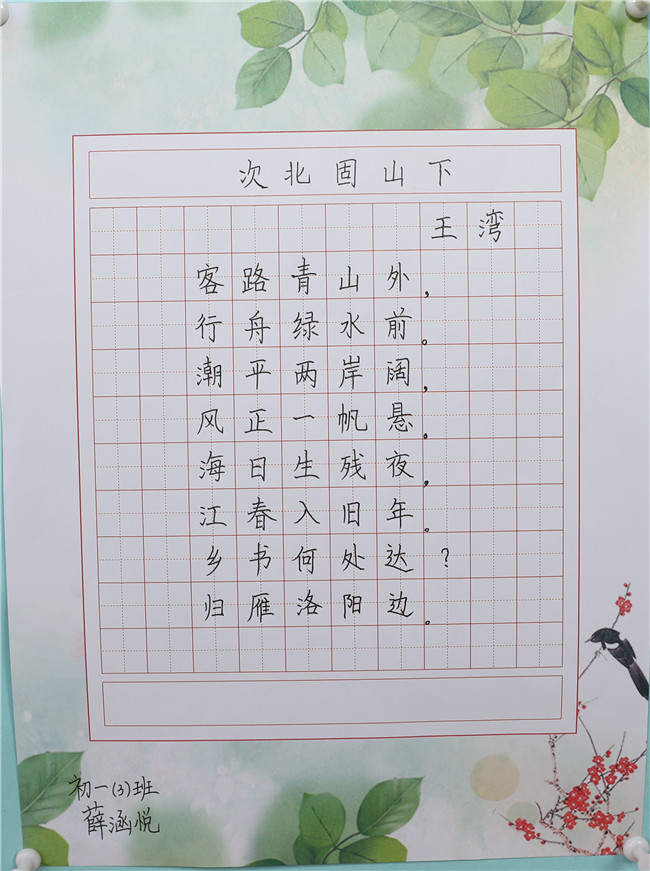 次北固山下
王湾
客路青山外，
行舟绿水前。
潮平两岸阔，
风正一帆悬。
海日生残夜，
江春入旧年。
乡书何处达？
归雁洛阳边。
初一(3)班
薛涵悦